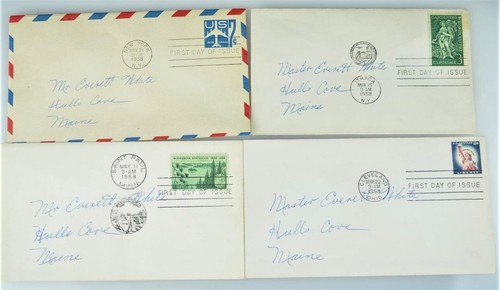 NEW YORK
1958
N.Y.
US
7¢
FIRST DAY OF ISSUE
Mr Everett White
Hulls Cove
Maine
ITHACA
MAR 15
9-AM
1958
N.Y.
FIRST DAY OF ISSUE
Master Everett White
Hulls Cove
Maine
SAINT PAUL
MAY 11
9-AM
1958
MINN.
FIRST DAY OF ISSUE
Mr Everett White
Hulls Cove
Maine
CLEVELAND
9-AM
1958
OHIO
LIBERTY
FIRST DAY OF ISSUE
Master Everett White
Hulls Cove
Maine